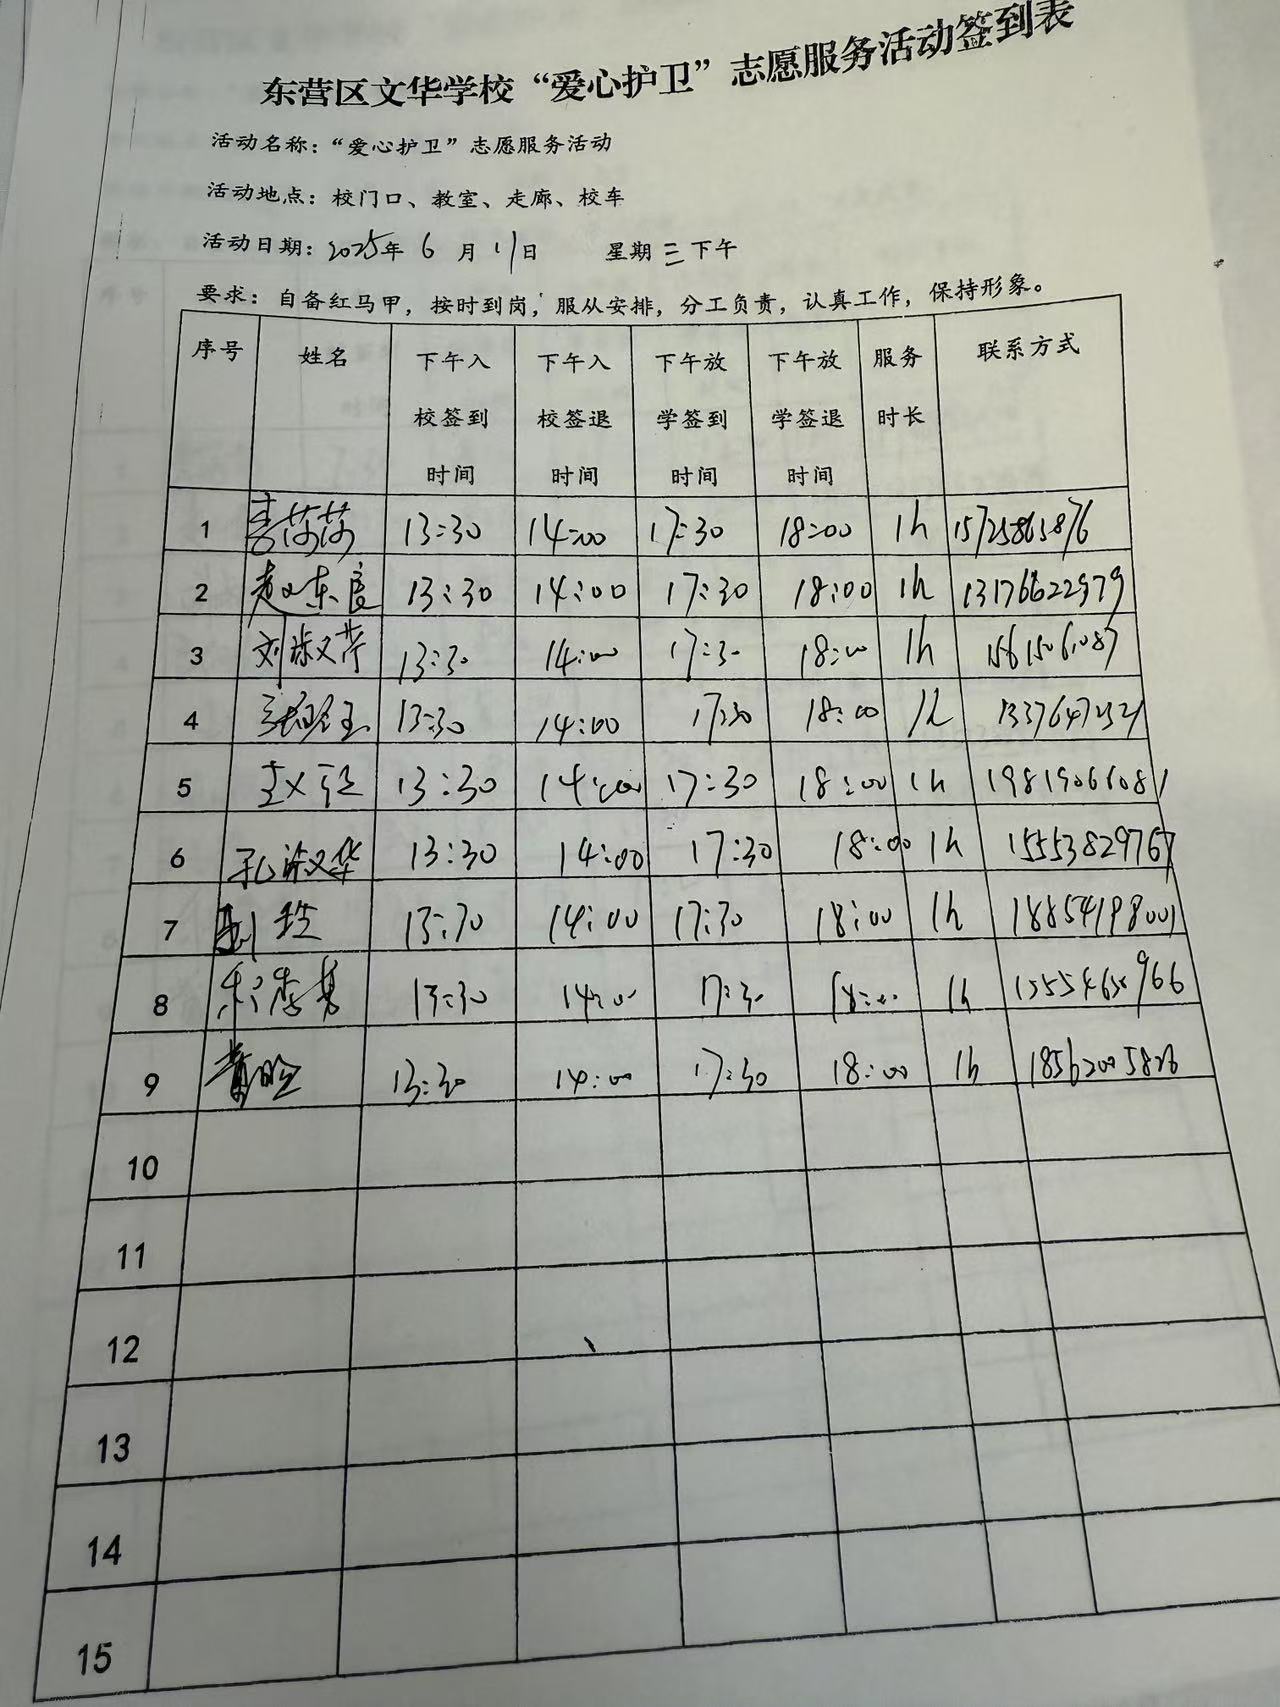 东营区文华学校“爱心护卫”志愿服务活动签到表
活动名称：“爱心护卫”志愿服务活动
活动地点：校门口、教室、走廊、校车
活动日期：2025年6月11日 星期三下午
要求：自备红马甲，按时到岗，服从安排，分工负责，认真工作，保持形象。
序号 姓名 下午入校签到时间 下午入校签退时间 下午放学签到时间 下午放学签退时间 服务时长 联系方式
1 13:30 14:00 17:30 18:00 1h 15725865876
2 13:30 14:00 17:30 18:00 1h 13176622979
3 刘淑芹 13:30 14:00 17:30 18:00 1h 15615061087
4 13:30 14:00 17:30 18:00 1h
5 13:30 14:00 17:30 18:00 1h 19819066081
6 孔淑华 13:30 14:00 17:30 18:00 1h 15553829767
7 13:30 14:00 17:30 18:00 1h 18854198001
8 13:30 14:00 17:30 18:00 1h
9 13:30 14:00 17:30 18:00 1h 18562005826
10
11
12
13
14
15